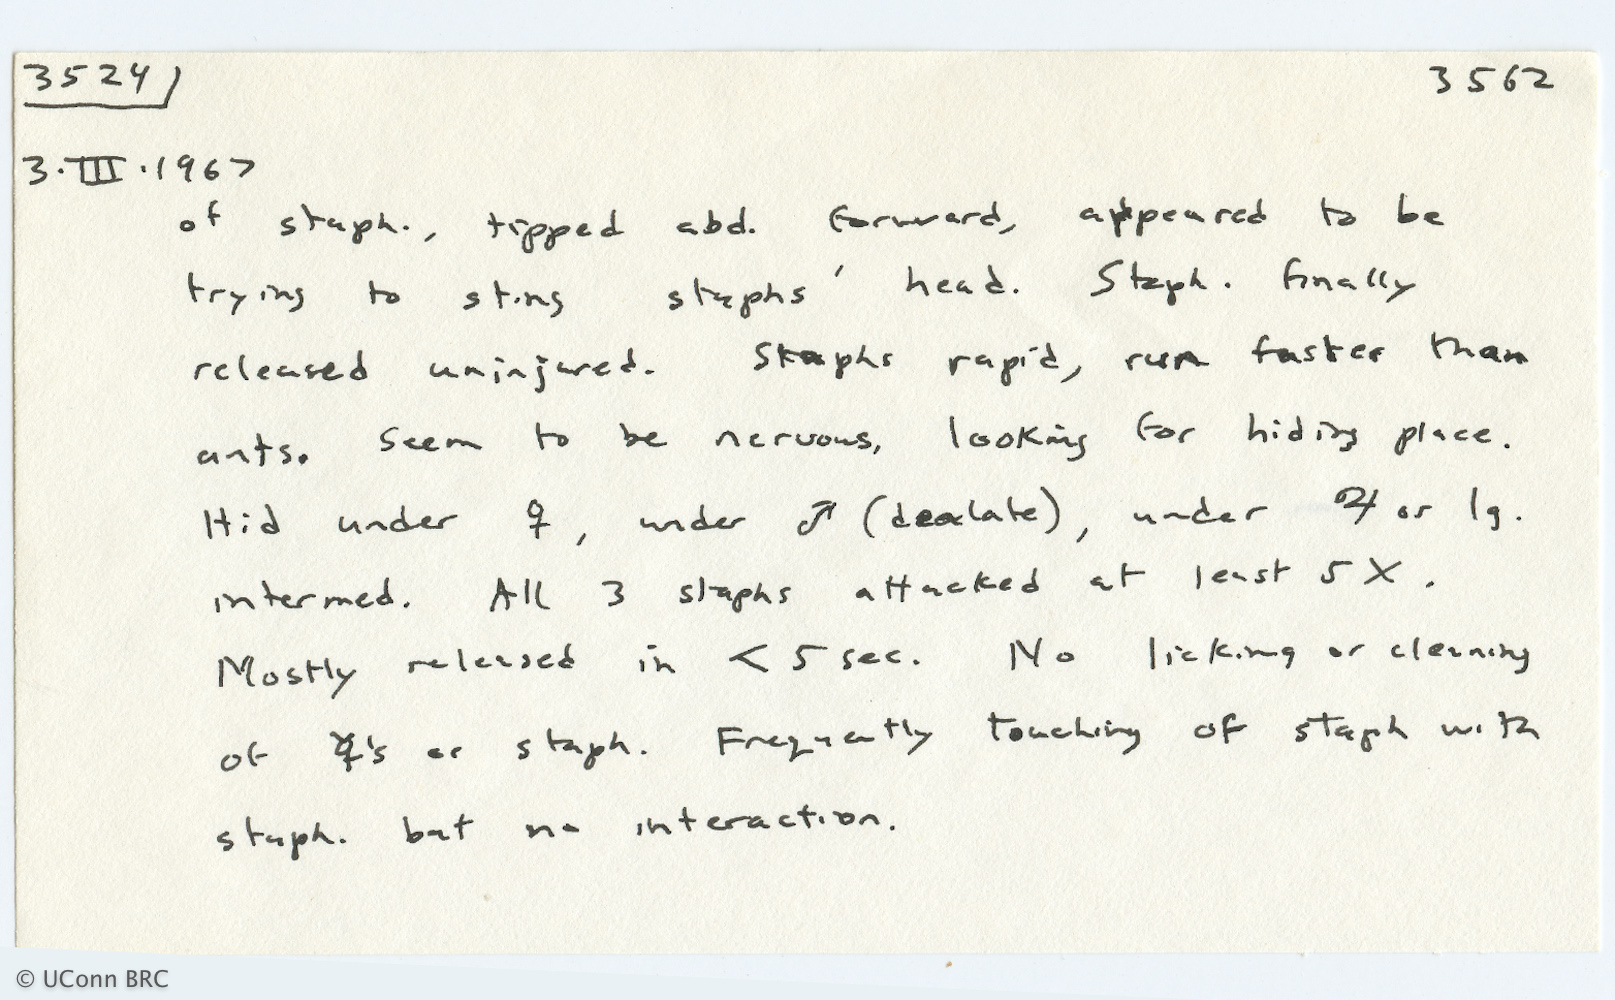 3524 3562
3.III.1967
of staph., tipped abd. forward, appeared to be
trying to sting staphs' head. Staph. finally
released uninjured. Staphs rapid, run faster than
ants. Seem to be nervous, looking for hiding place.
Hid under ♀, under ♂ (dealate), under ♃ or lg.
intermed. All 3 staphs attacked at least 5 X.
Mostly released in < 5 sec. No licking or cleaning
of ☿'s or staph. Frequently touching of staph with
staph. but no interaction.
© UConn BRC